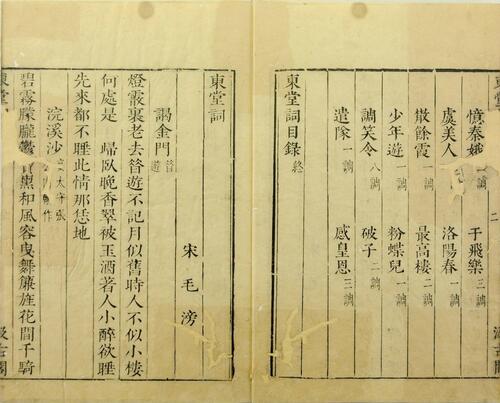 憶秦娥 一調 于飛樂 三調
虞美人 調 洛陽春 一調
散餘霞 一調 最高樓 二調
少年遊 一調 粉蝶兒 一調
調笑令 八調 破子 二調
遣隊 一調 感皇恩 三調
東堂詞目錄 終
東堂詞
宋 毛滂
謁金門 昔遊
燈霰裏老去昔遊不記月似舊時人不似小樓
何處是 歸臥晚香翠被玉酒著人小醉欲睡
先來都不睡此情那恁地
浣溪沙 太守張 作
碧霧朦朧鬱寶熏和風容曳舞簾旌花間千騎